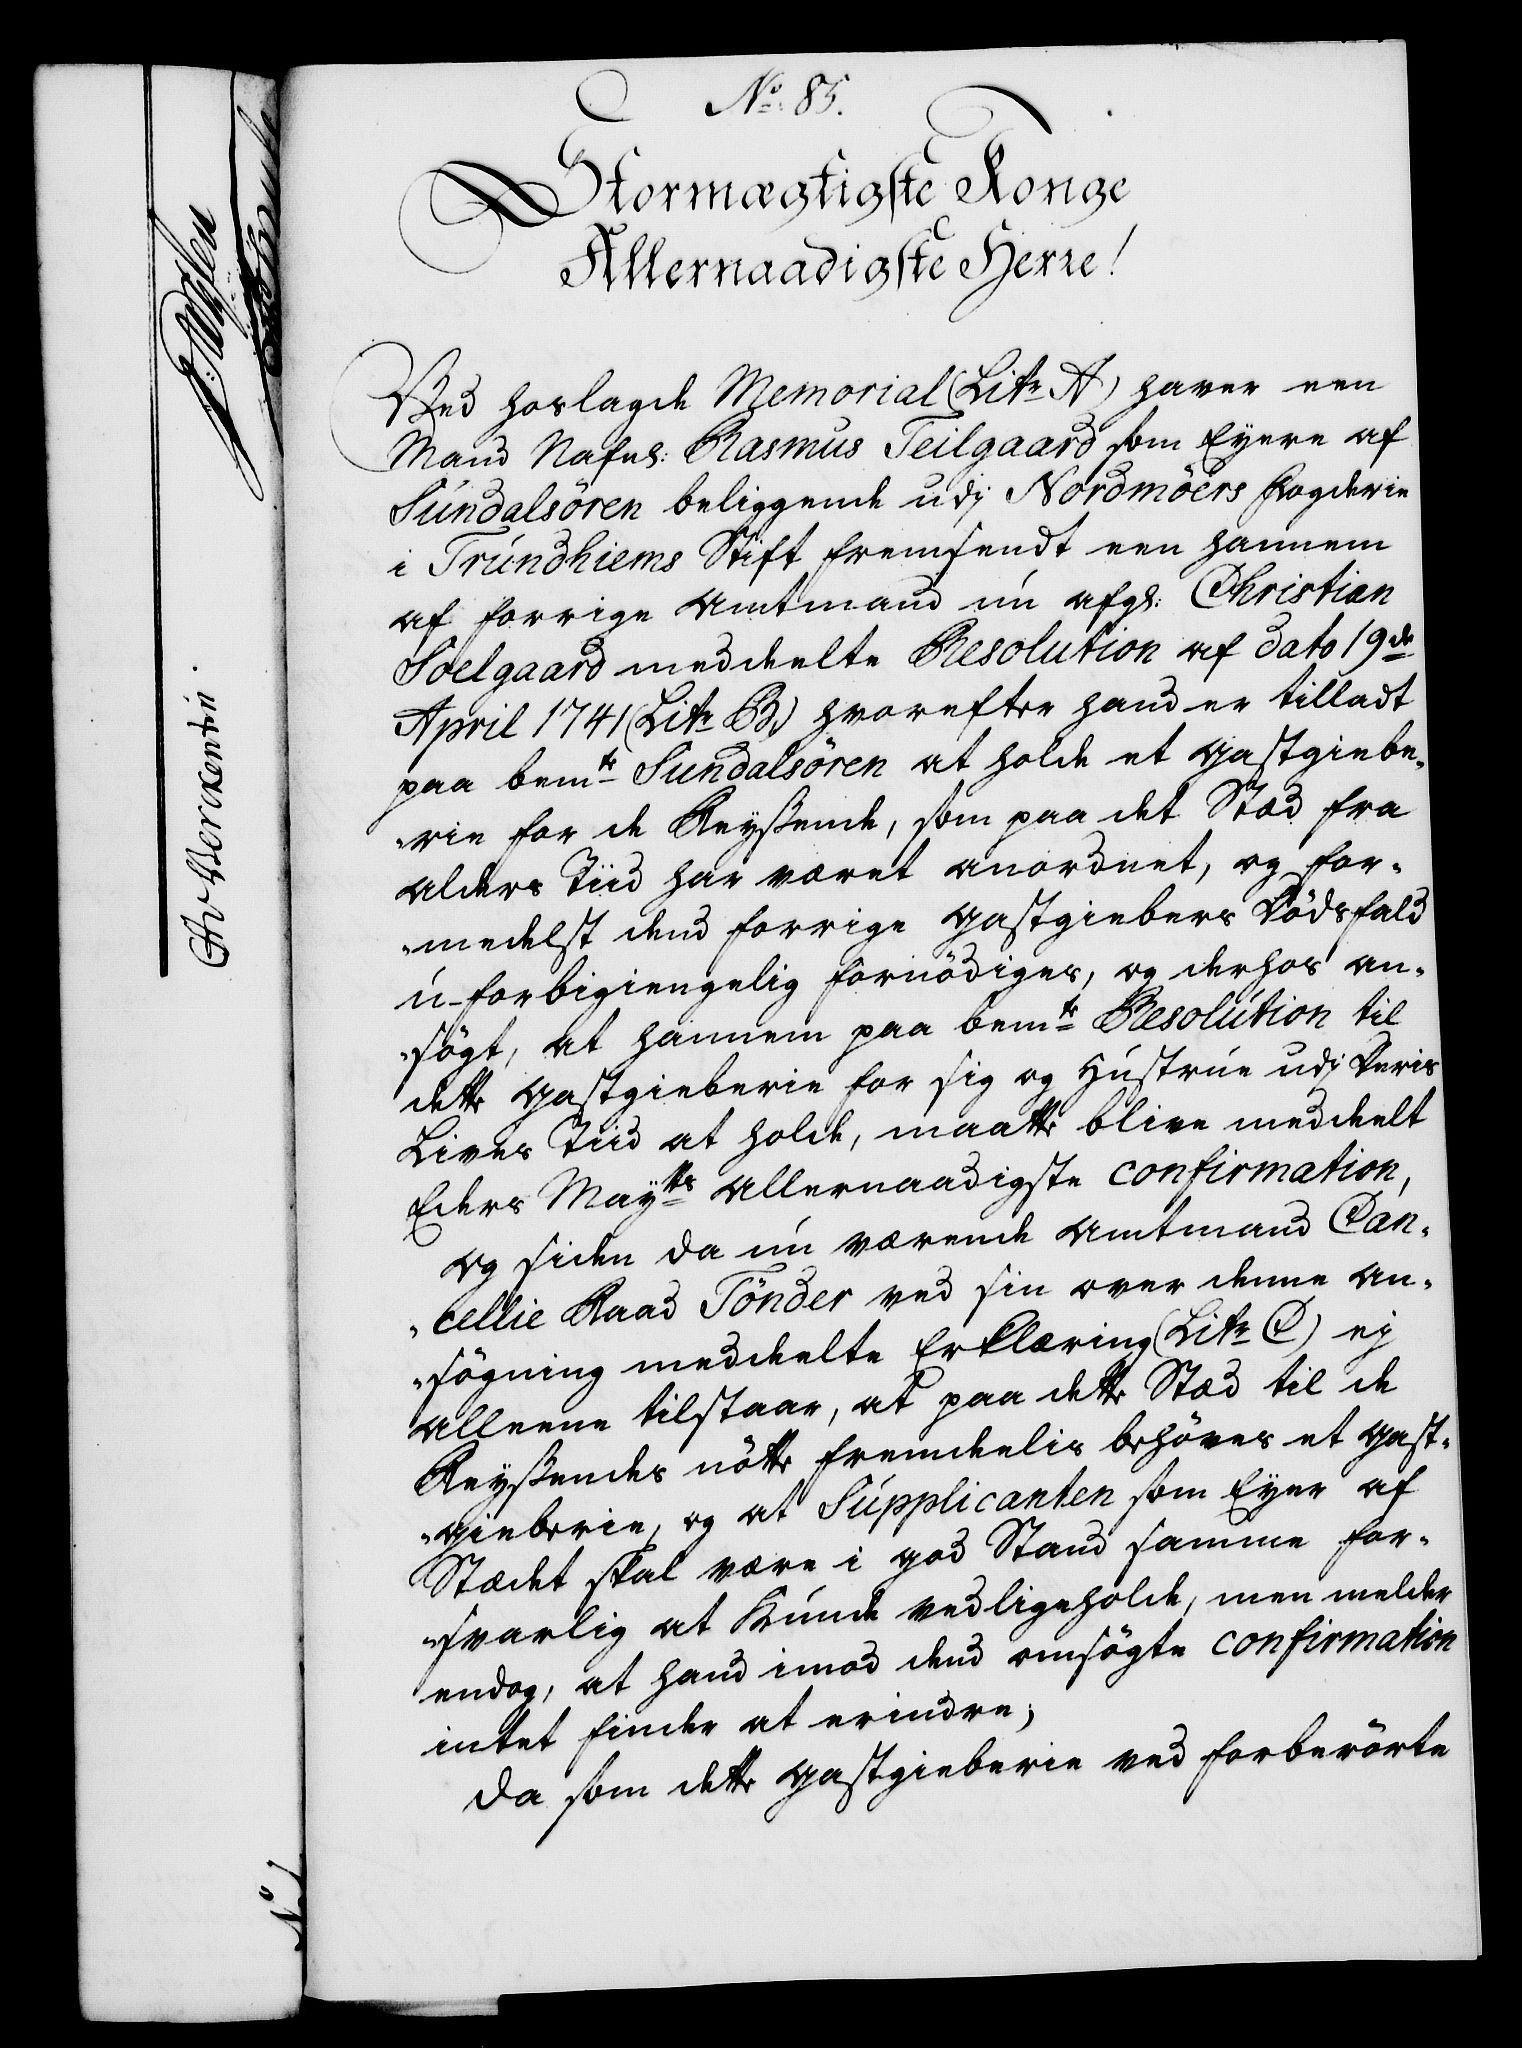 No: 85.
Stormægtigste Konge
Allernaadigste Herre!
Ved hoslagde Memorial (Litr A) haver een
Mand Nafnl: Rasmus Teilgaard som Eyere af
Sundalsören beliggende udj Nordmöers Fogderie
i Trundhiems Stift fremsendt een hannem
af forrige Amtmand nu afgl: Christian
Soelgaard meddeelte Resolution af dato 19de
April 1741 (Litr B) hvorefter hand er tilladt
paa bemte Sundalsören at holde et Gastgiebe-
-rie for de Reyßende, som paa det Stæd fra
Alders Tiid har været anordnet, og for-
-medelst dend forrige Gastgiebers Dödsfald
u-forbigiengelig fornödiges, og derhos an-
-sögt, at hannem paa bemte Resolution til
dette Gastgieberie for sig og Hustrue udj Deris
Lives Tiid at holde, maatte blive meddeelt
Eders Maytts Allernaadigste confirmation,
og siden da nu værende Amtmand Can-
-cellie Raad Tönder ved sin over denne an-
-sögning meddeelte Erklæring (Litr C) ej
alleene tilstaar, at paa dette Stæd til de
Reyßendes nötte fremdeelis behöves et Gast-
-gieberie, og at Supplicanten som Eyer af
Stædet skal være i god Stand samme for-
-svarlig at kunde vedligeholde, men melder
endog, at hand imod dend omsögte confirmation
intet finder at erindre;
Da som dette Gastgieberie ved forberörte
CAv Berckentin
No